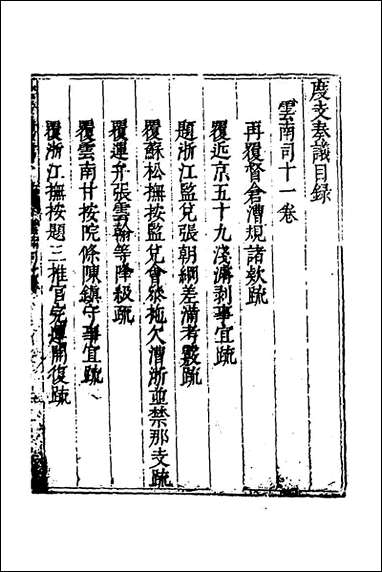 度支奏議目錄
雲南司十一卷
再覆督倉漕規諸欵疏
覆近京五十九淺濬剝事宜疏
題浙江監兌張朝綱差滿考覈疏
覆蘇松撫按監兌會叅拖欠漕浙並禁那支疏
覆運弁張雲翰等降級疏
覆雲南甘按院條陳鎮守事宜疏
覆浙江撫按題三推官完運開復疏